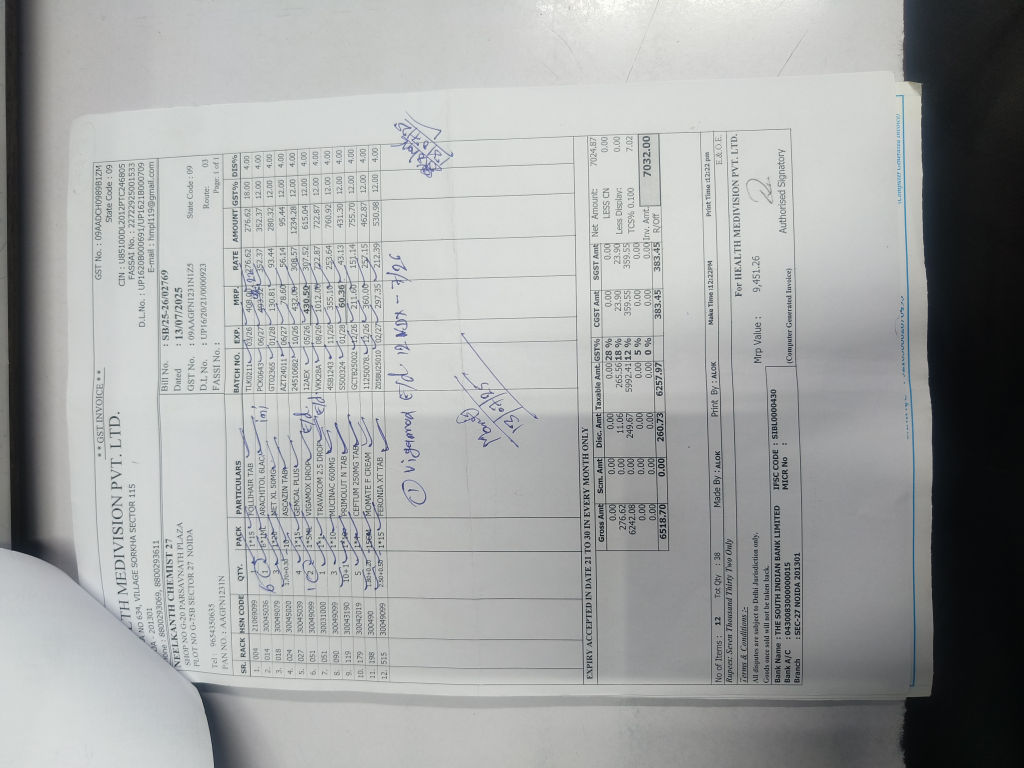 ** GST INVOICE **
GST No. : 09AADCH0989B1ZM
State Code : 09
TH MEDIVISION PVT. LTD.
NO 634, VILLAGE SORKHA SECTOR 115
201301
8800293069, 8800293611
CIN : U85100DL2012PTC246805
FASSAI No. : 22722925001533
D.L.No. : UP1620B000691/UP1621B000709
E-mail : hmpl119@gmail.com
NEELKANTH CHEMIST 27
SHOP NO G-20 PARSAVNATH PLAZA
PLOT NO G-75B SECTOR 27 NOIDA
Tel : 9654350635
PAN NO. : AAGFN1231N
Bill No. : SB/25-26/02769
Dated : 13/07/2025
GST No. : 09AAGFN1231N1Z5 State Code : 09
D.L No. : UP16/20/21/0000923 Route: 03
FASSI No. : Page: 1 of 1
SR. RACK HSN CODE QTY. PACK PARTICULARS BATCH NO. EXP. MRP. RATE AMOUNT GST% DIS%
1. 004 21069099 1*15 FOLLIHAIR TAB TLK0211 276.62 276.62 18.00 4.00
2. 014 30045036 ARACHITOL 6LAC PCK0645 06/27 352.37 352.37 12.00 4.00
3. 018 30049079 3 MET XL 50MG GT02365 01/28 130.81 93.44 280.32 12.00 4.00
4. 024 30045020 ASCAZIN TAB AZT24011 06/27 78.60 56.14 95.44 12.00 4.00
5. 027 30045039 4 1*15 GEMCAL PLUS 24510682 10/26 432.00 308.57 1234.28 12.00 4.00
6. 051 30049099 VIGAMOX DROP 12AEK 05/26 430.50 307.52 615.04 12.00 4.00
7. 051 30031000 1 TRAVACOM 2.5 DROP VKK28A 08/26 1012.00 722.87 722.87 12.00 4.00
8. 090 30049099 3 1*10 MUCINAC 600MG 4SB1243 11/26 355.10 253.64 760.92 12.00 4.00
9. 119 30043190 10+1 PRIMOLUT N TAB SS00324 01/28 60.36 43.13 431.30 12.00 4.00
10. 179 30042019 5 CEFTUM 250MG TAB GCT925002 12/26 211.60 151.14 755.70 12.00 4.00
11. 198 300490 MOMATE F CREAM 11250078 12/26 360.00 257.15 462.87 12.00 4.00
12. 515 30049099 1*15 FERONIA XT TAB Z05BU25010 02/27 297.35 212.39 530.98 12.00 4.00
EXPIRY ACCEPTED IN DATE 21 TO 30 IN EVERY MONTH ONLY
Gross Amt Scm. Amt Disc. Amt Taxable Amt. GST% CGST Amt SGST Amt
0.00 0.00 0.00 0.00 28 % 0.00 0.00
276.62 0.00 11.06 265.56 18 % 23.90 23.90
6242.08 0.00 249.67 5992.41 12 % 359.55 359.55
0.00 0.00 0.00 0.00 5 % 0.00 0.00
0.00 0.00 0.00 0.00 0 % 0.00 0.00
6518.70 0.00 260.73 6257.97 383.45 383.45
Net Amount: 7024.87
LESS CN 0.00
Less Display: 0.00
TCS% 0.100 7.02
Inv. Amt. 7032.00
R/Off
No of Items : 12 Tot Qty : 38 Made By : ALOK Print By : ALOK Make Time :12:22PM Print Time :12:22 pm E.& O.E.
Rupees: Seven Thousand Thirty Two Only
Terms & Conditions :-
All disputes are subject to Delhi Jurisdiction only.
Goods once sold will not be taken back.
Mrp Value : 9,451.26
For HEALTH MEDIVISION PVT. LTD.
Authorised Signatory
Bank Name : THE SOUTH INDIAN BANK LIMITED IFSC CODE : SIBL0000430
Bank A/C : 0430083000000015 MICR No :
Branch : SEC-27 NOIDA 201301
(Computer Generated Invoice)
(Computer Generated Invoice)